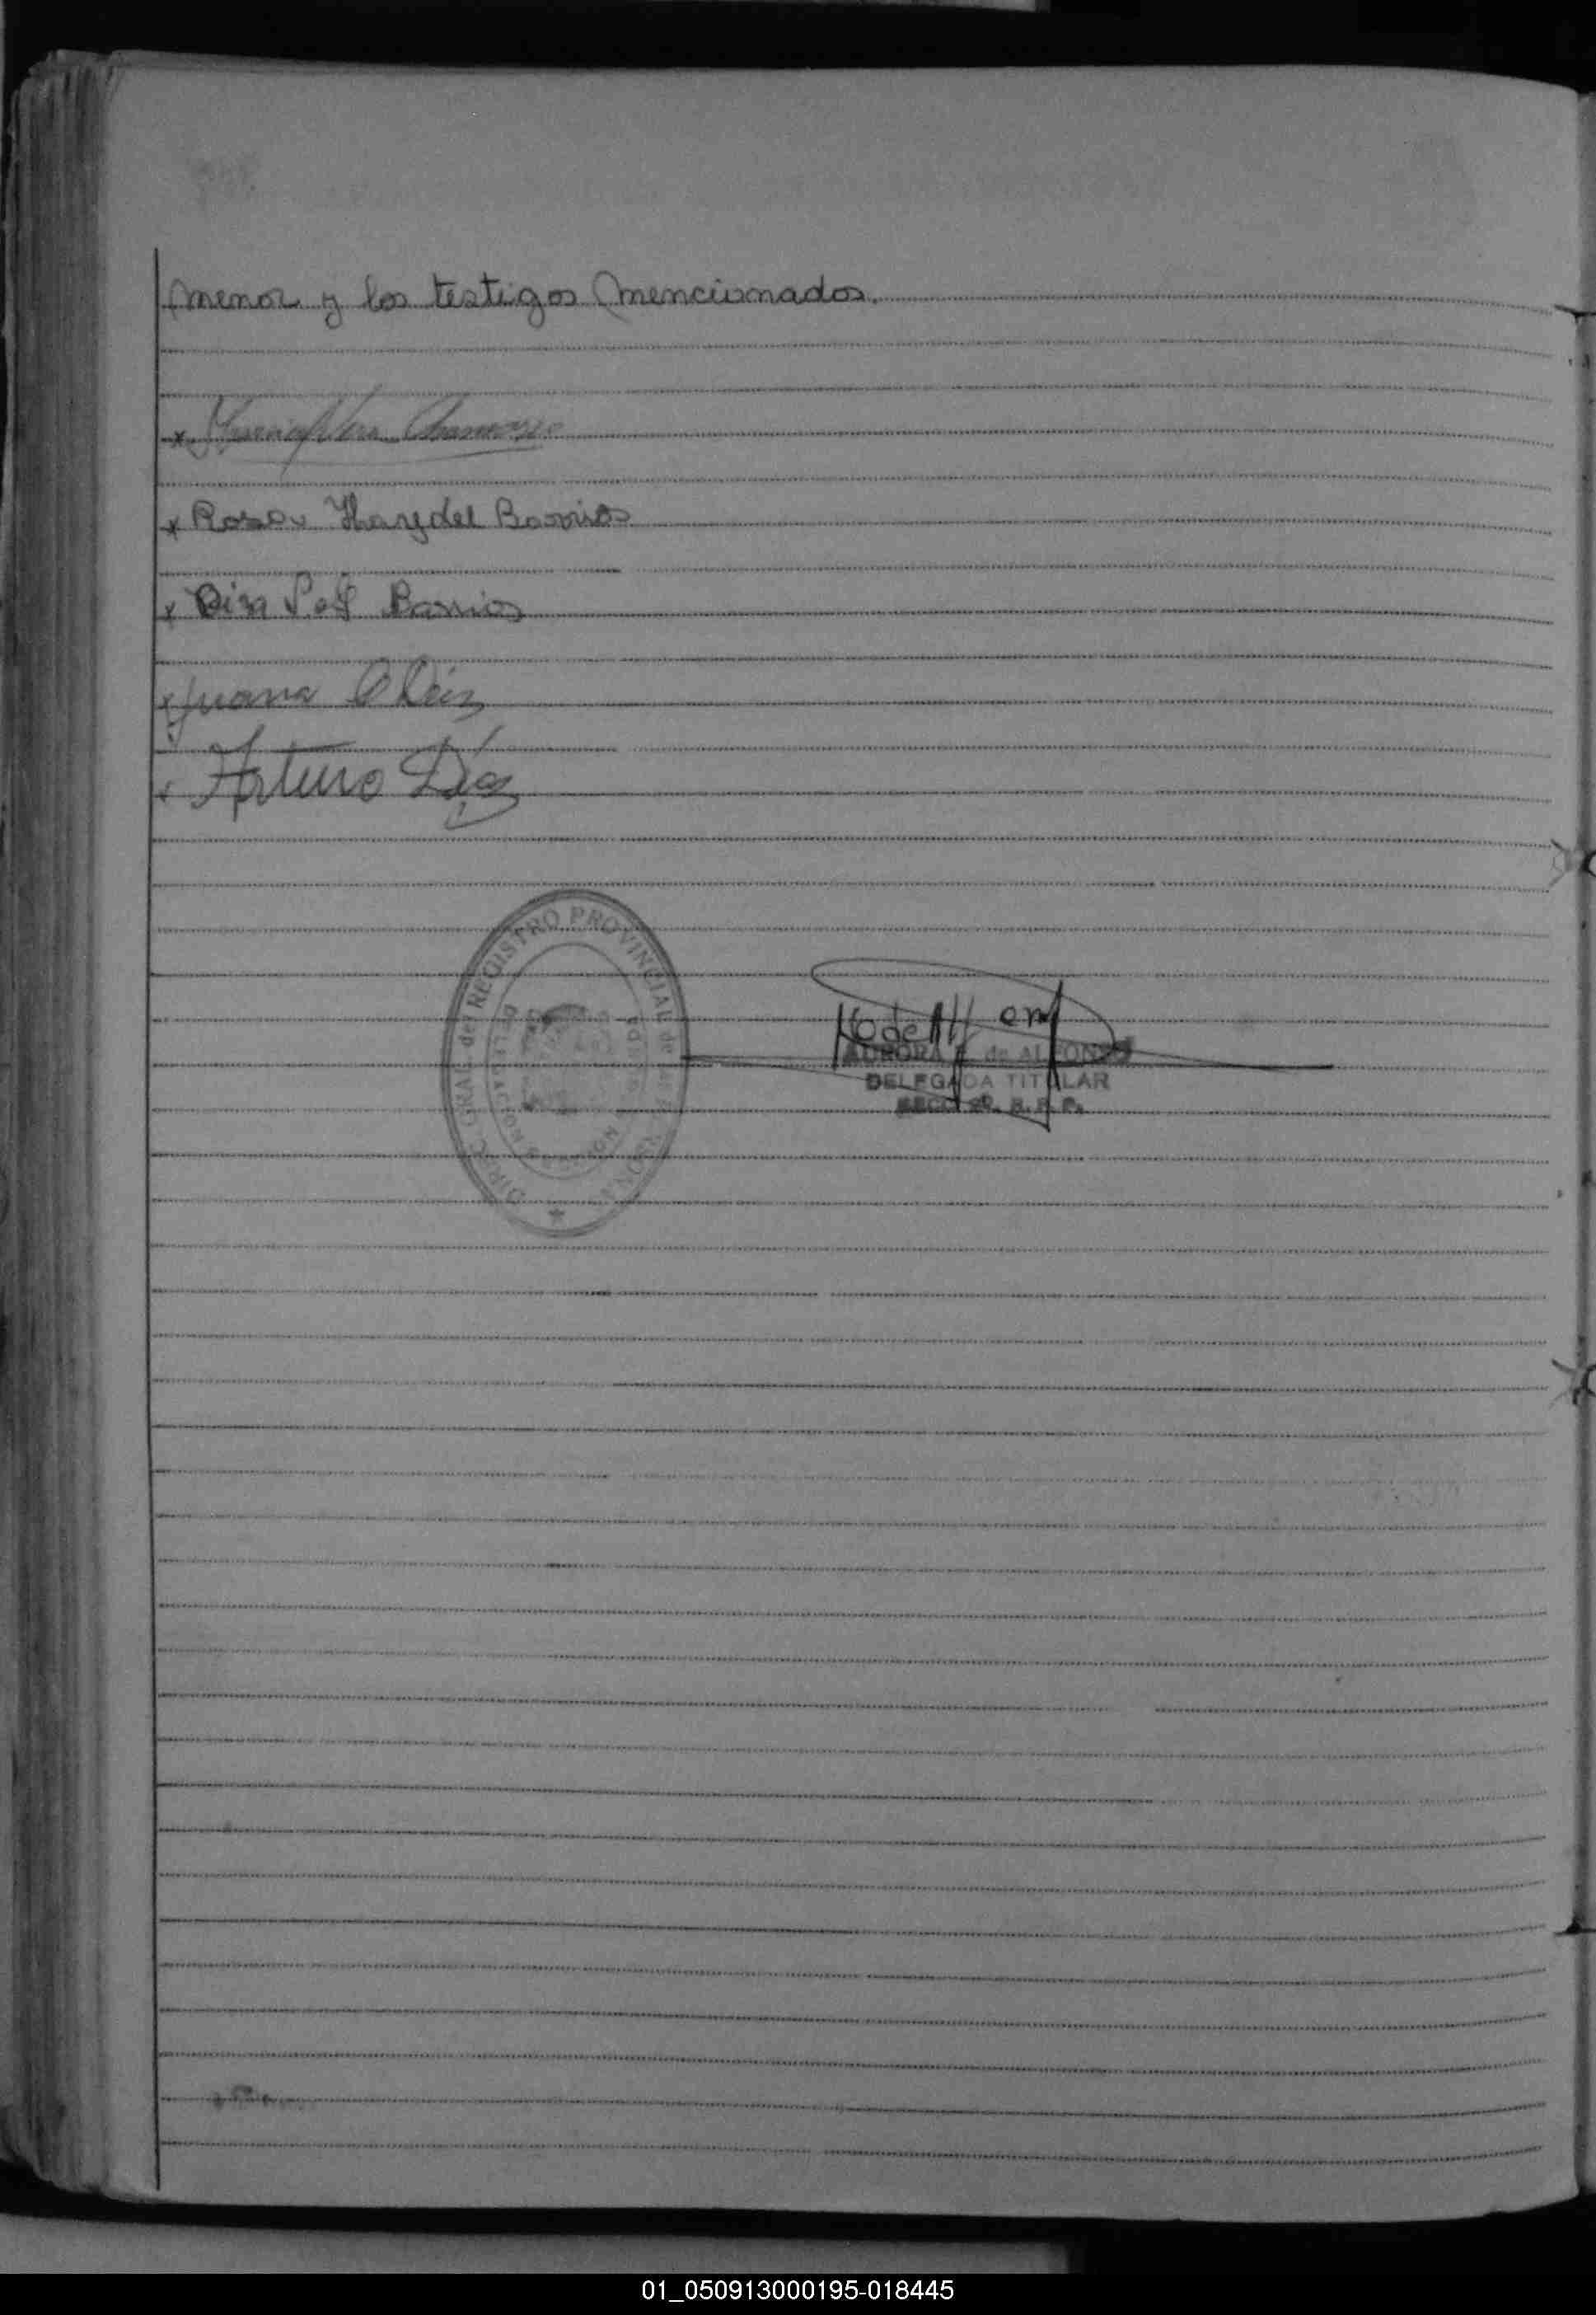 menor y los testigos mencionados.
x Vera Chamorro
x Rosa Haydee Barrios
x Barrios
x Juana
x Arturo Díaz
DIREC. GRAL. del REGISTRO PROVINCIAL de las PERSONAS
DELEGACION
AURORA de ALFONSO
DELEGADA TITULAR
SECC. R. P. P.
01_050913000195-018445